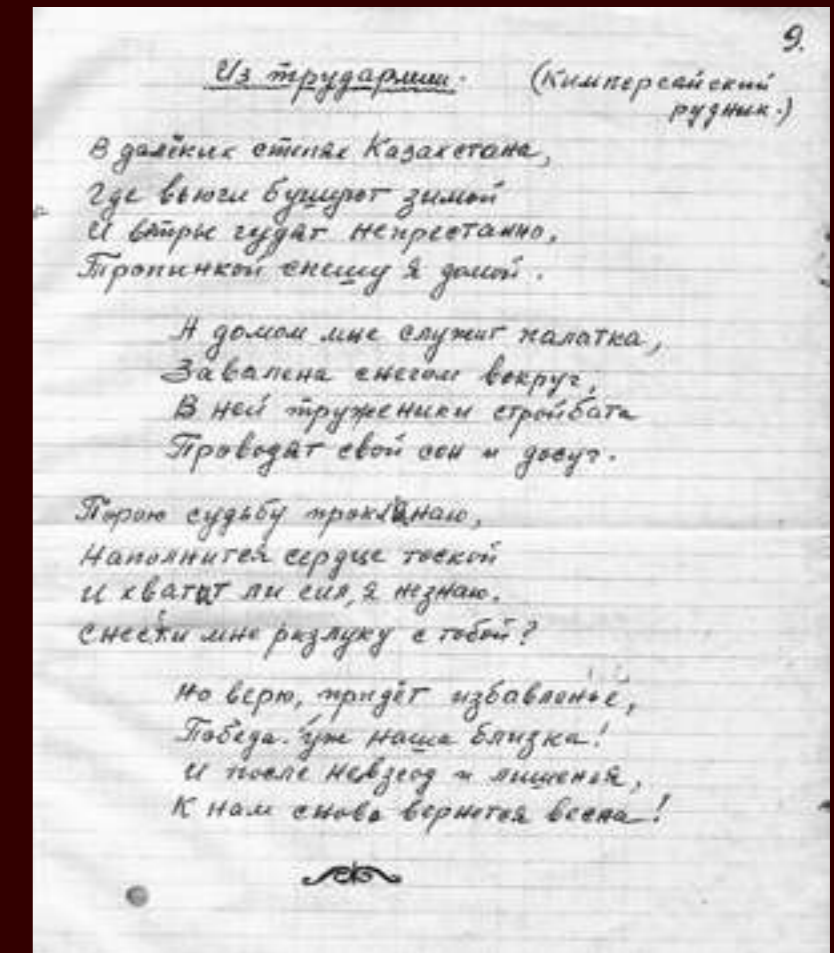 9.
Из трудармии.
(Кимперсайский
рудник.)
В далёких степях Казахстана,
Где вьюги бушуют зимой
И ветры гудят непрестанно,
Тропинкой спешу я домой.
А домом мне служит палатка,
Завалена снегом вокруг,
В ней труженики стройбата
Проводят свой сон и досуг.
Порою судьбу проклинаю,
Наполнится сердце тоской
И хватит ли сил, я незнаю.
Снести мне разлуку с тобой?
Но верю, придёт избавленье,
Победа. уж наша близка!
И после невзгод и лишенья,
К нам снова вернётся весна!